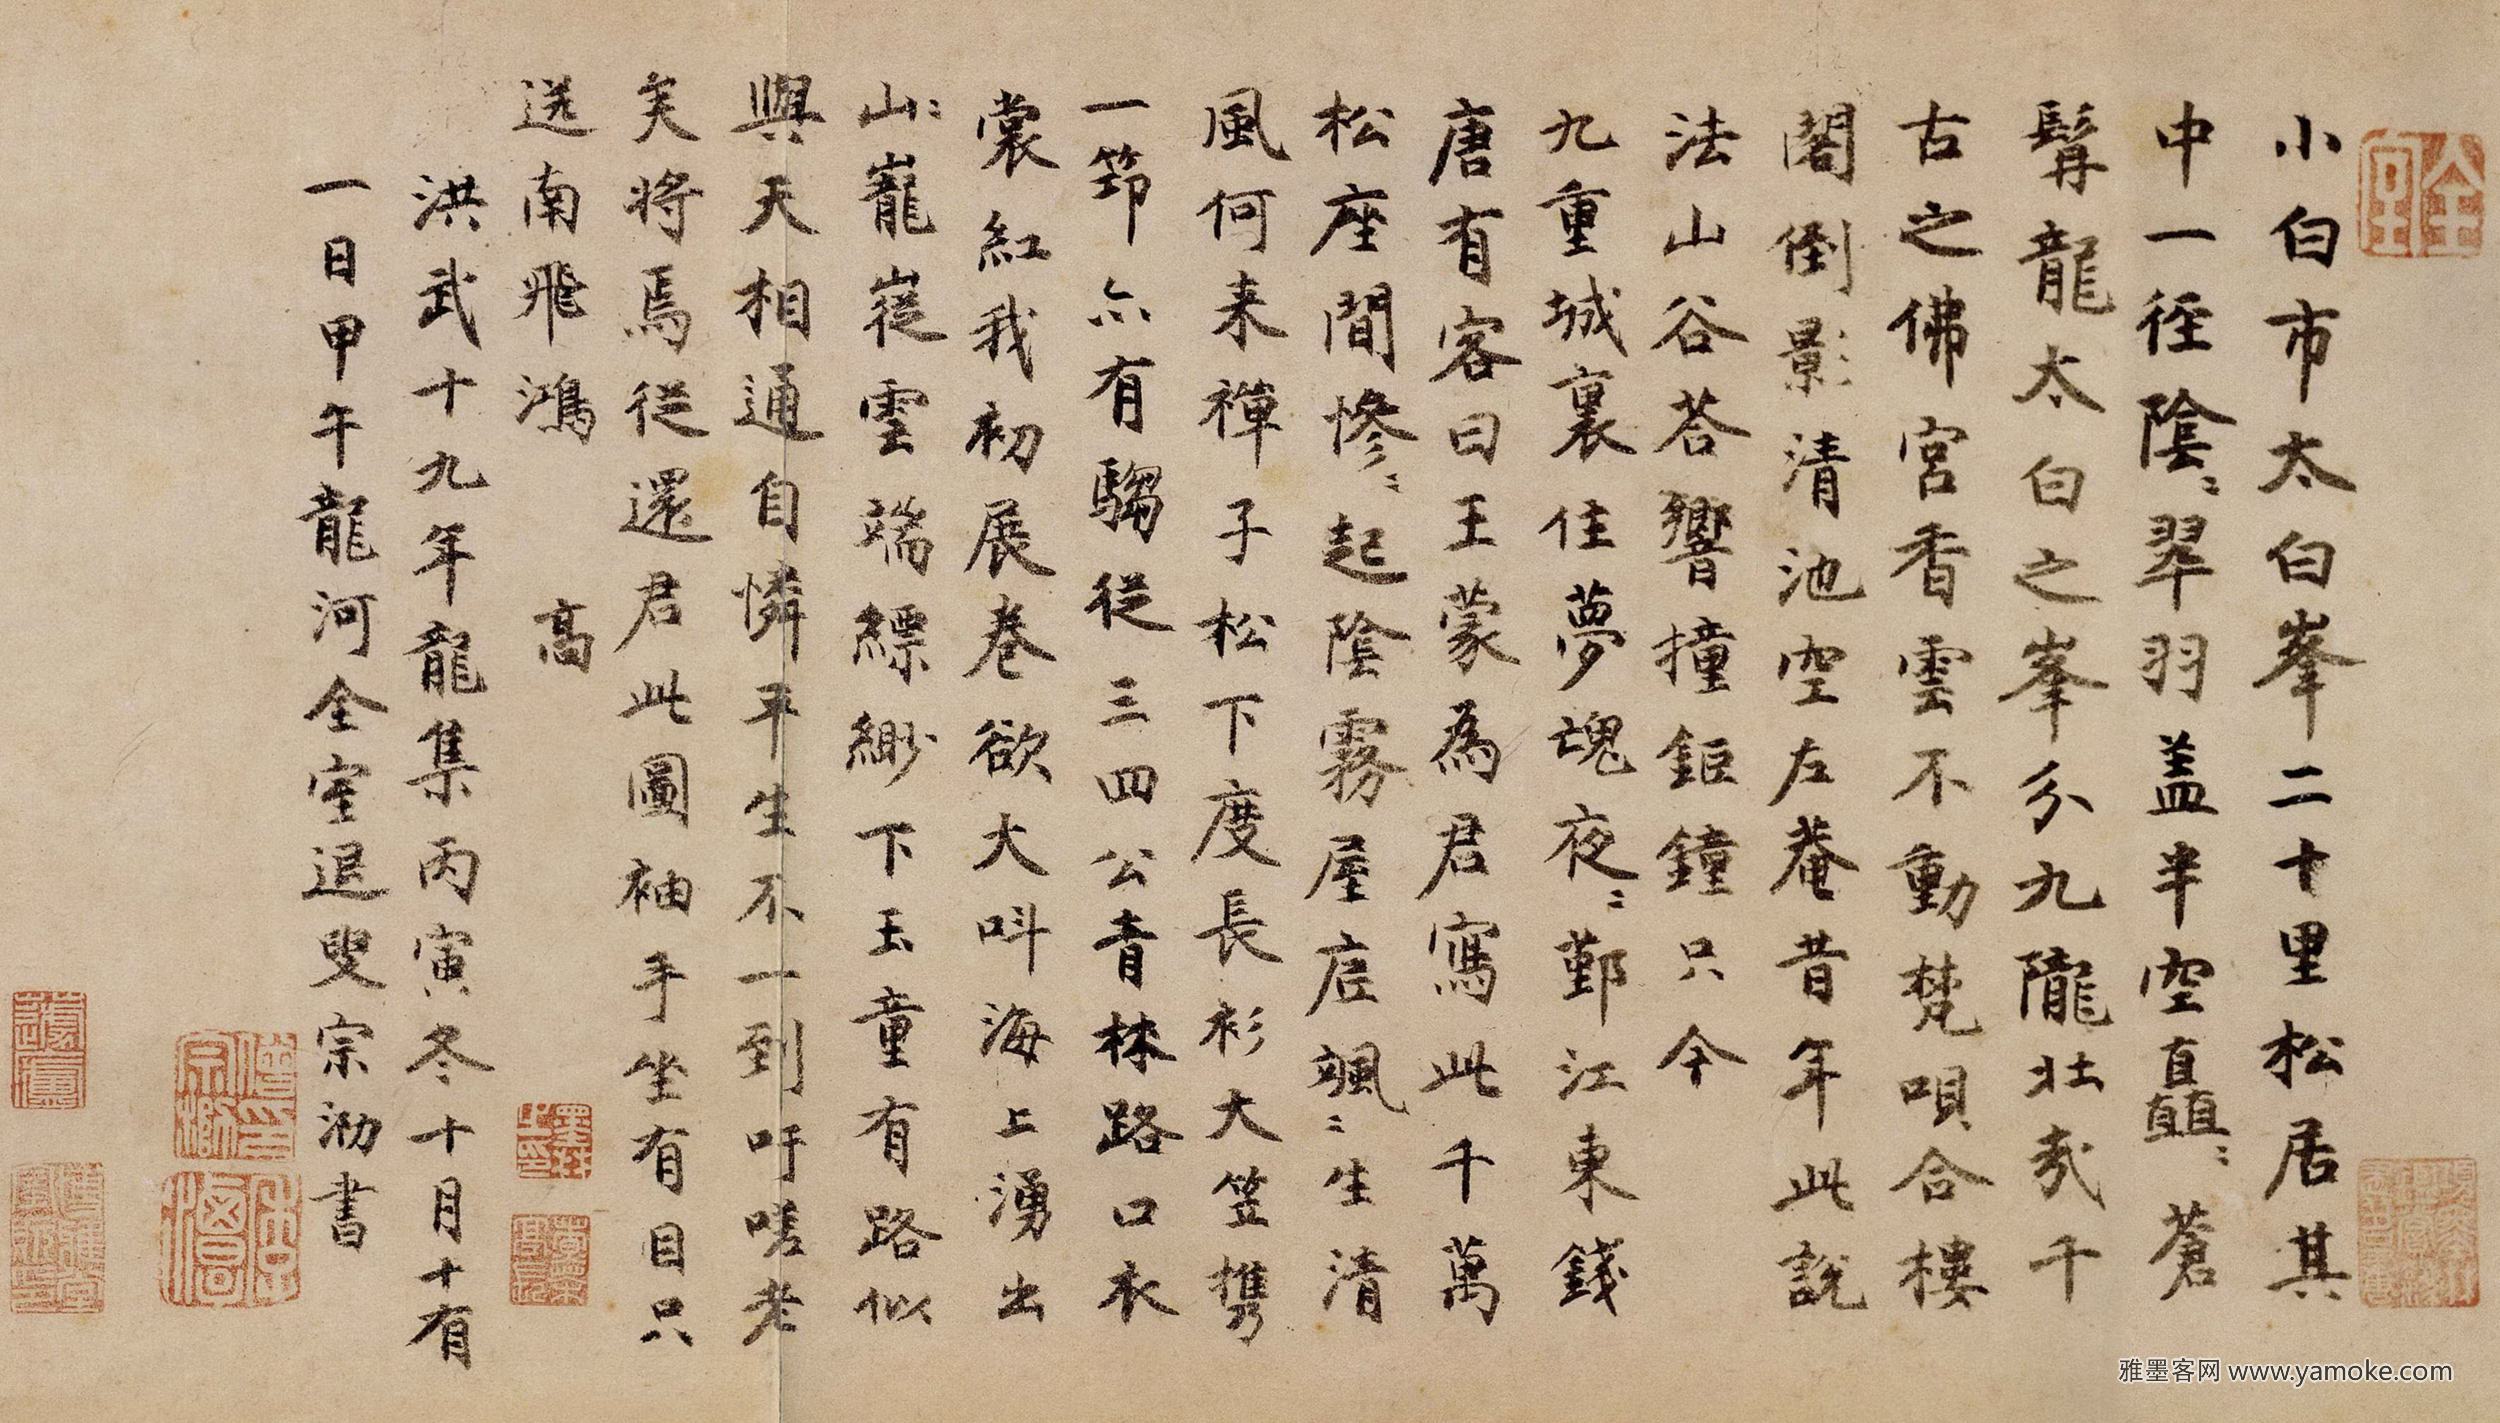 小白市太白峯二十里松居其
中一徑陰〻翠羽盖半空直矗〻蒼
髯龍太白之峯分九隴壮㢤千
古之佛宮香雲不動梵唄合樓
閣倒影清池空左菴昔年此説
法山谷荅響撞鉅鐘只今
九重城裏住夢魂夜〻鄞江東錢
唐有客曰王蒙為君寫此千萬
松座間慘〻起陰霧屋底颯〻生清
風何来禅子松下度長衫大笠携
一筇亦有騶從三四公青林路口衣
裳紅我初展卷欲大呌海上湧出
山〻巃嵸雲端縹緲下玉童有路似
與天相通自憐平生不一到吁嗟老
矣將焉從還君此圖袖手坐有目只
送南飛鴻 高
洪武十九年龍集丙寅冬十月十有
一日甲午龍河全室退叟宗泐書
全室
雅墨客网 www.yamoke.com